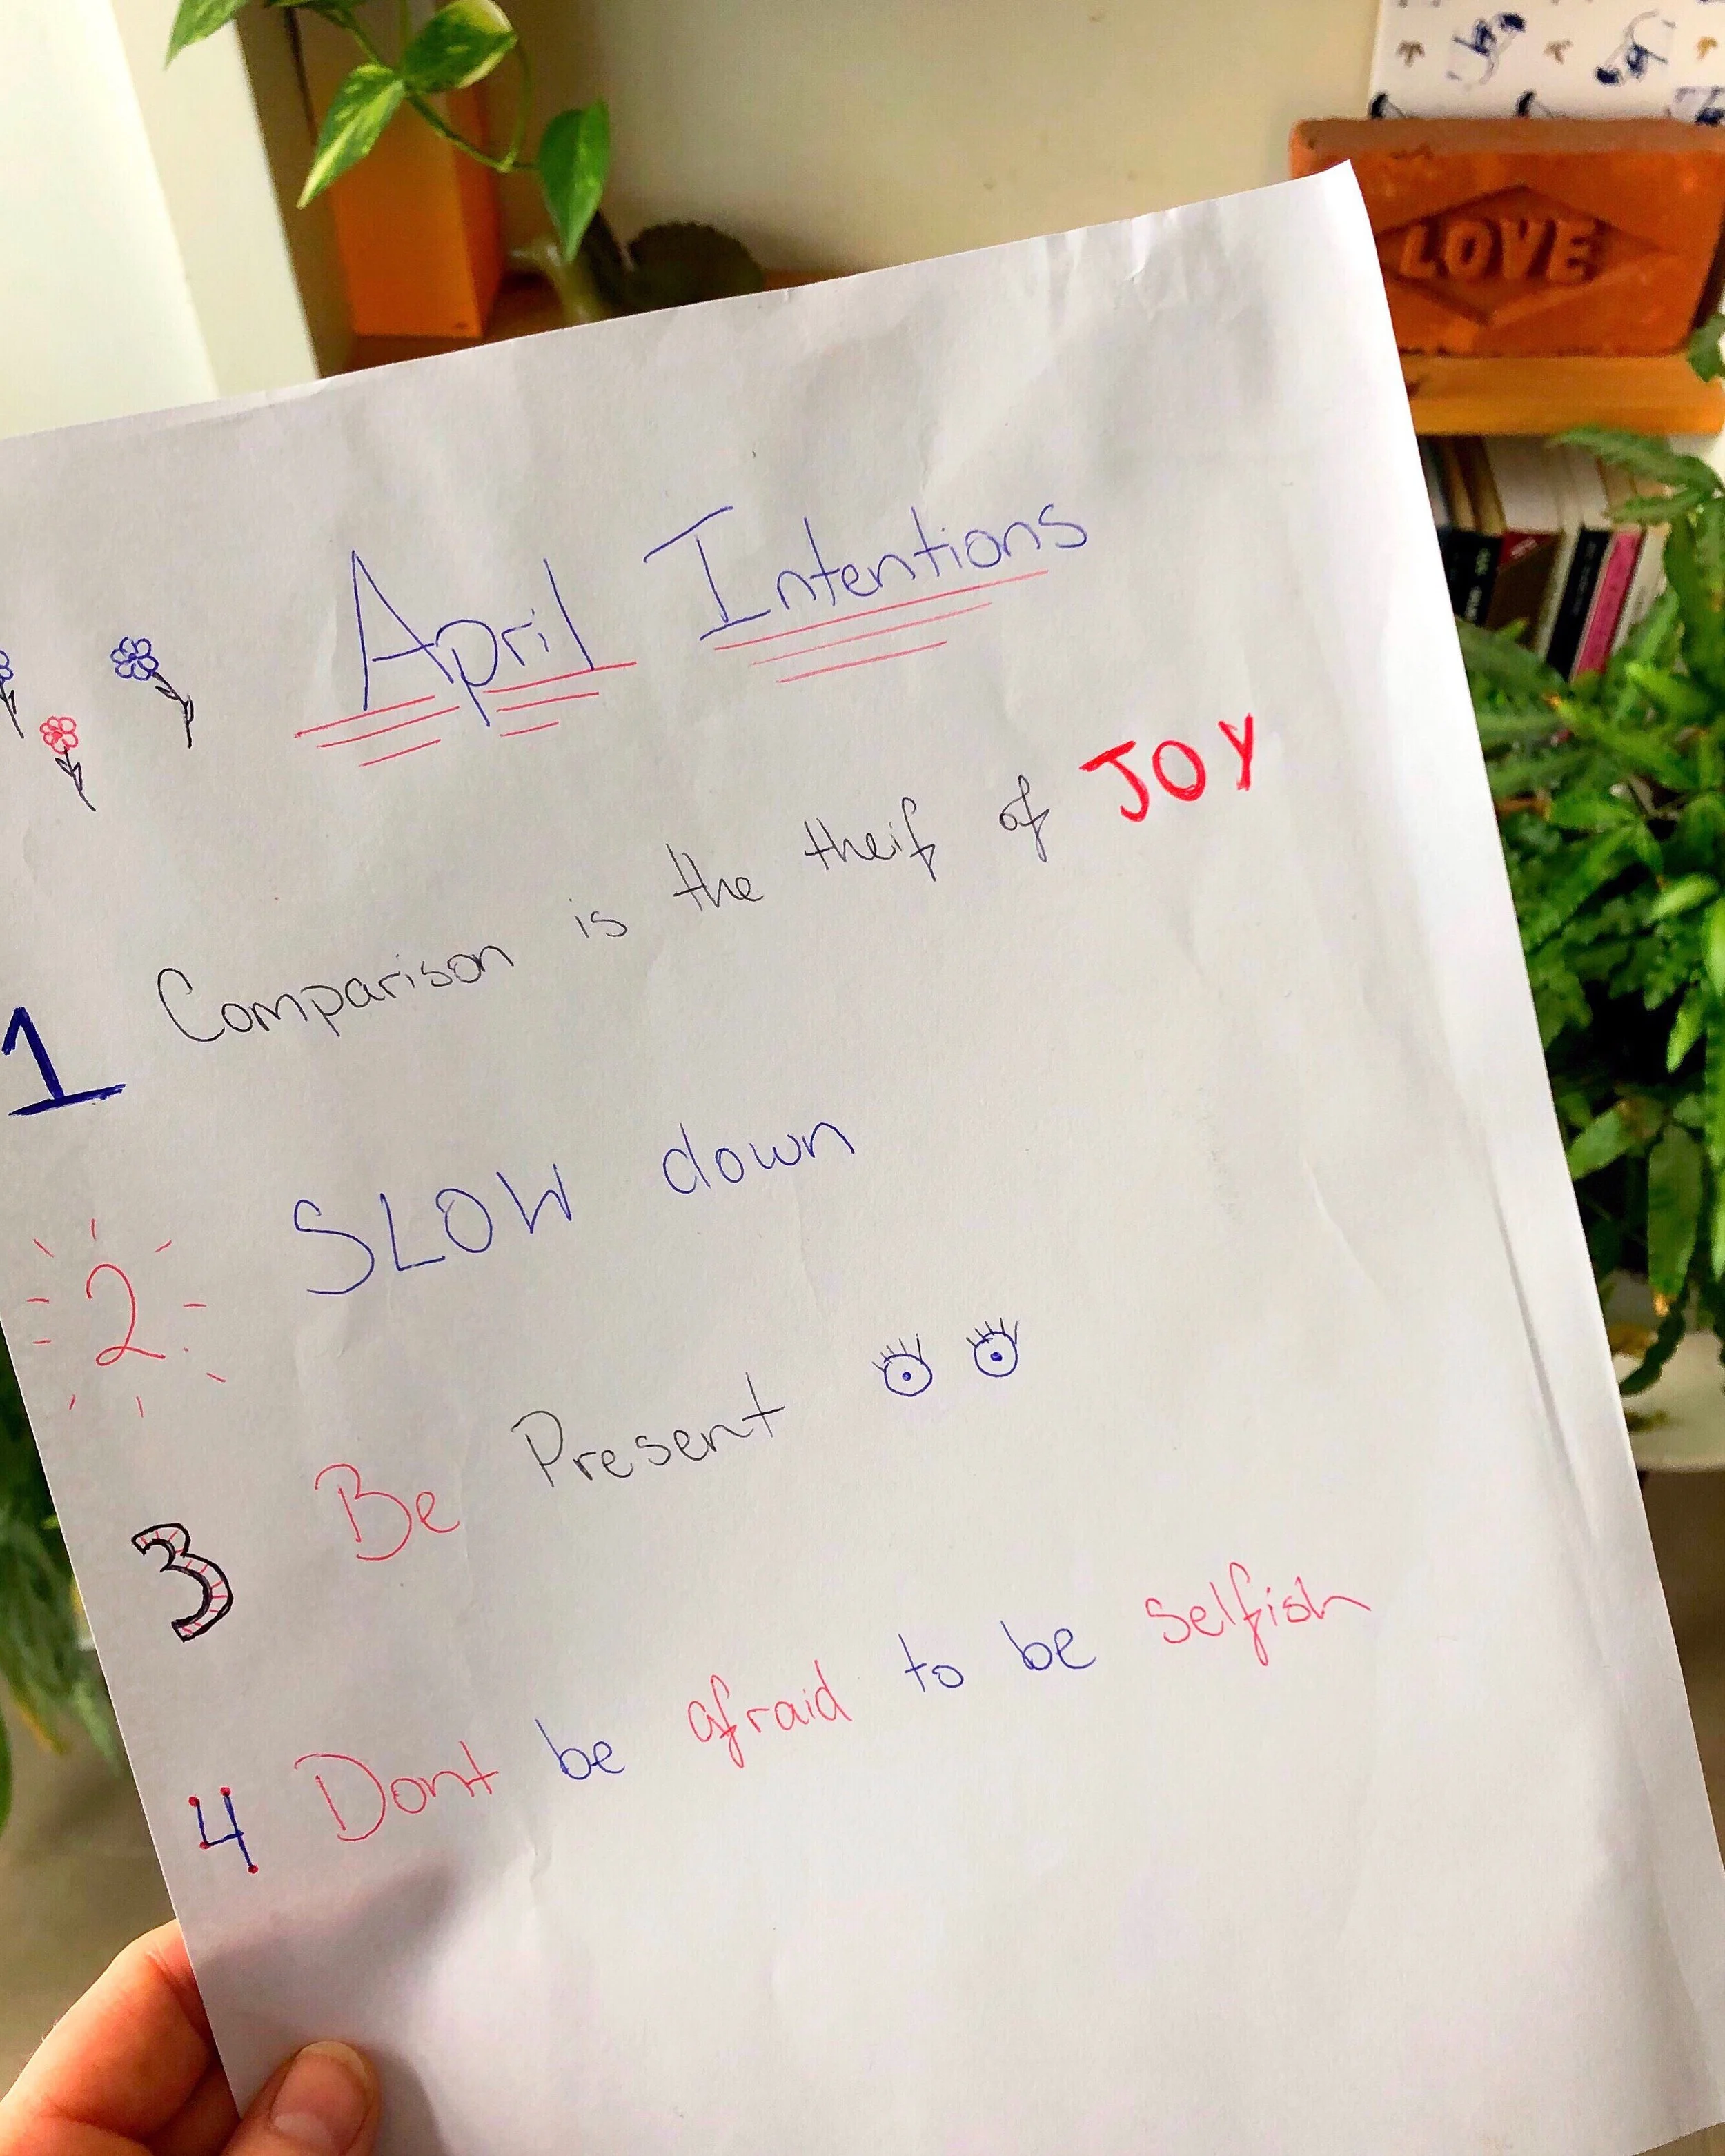 LOVE
April Intentions
1 Comparison is the theif of JOY
2 SLOW down
3 Be Present
4 Dont be afraid to be selfish